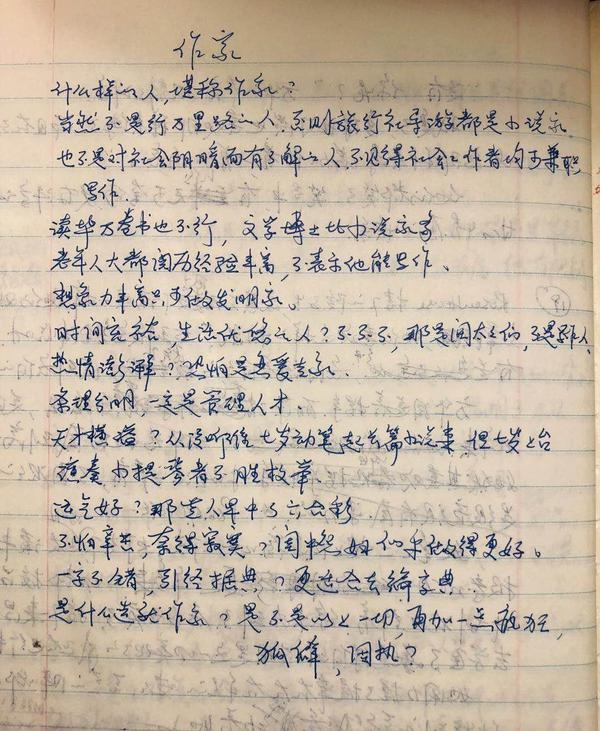 作家
什么样的人，堪称作家？
当然不是行万里路的人，否则旅行社导游都是小说家
也不是对社会阴暗面有了解的人，不见得社会工作者均可兼职
写作.
读毕万卷书也不行，文学博士比小说家多
老年人大都阅历经验丰富，不表示他能写作、
想象力丰富只可做发明家。
时间充裕，生活优悠之人？不不不，那是阔太太们，不是野人、
热情澎湃？恐怕是恋爱专家.
条理分明，一定是管理人才.
天才横溢？从没听住七岁动笔起长篇小说来，但七岁上台
演奏小提琴者不胜枚举.
运气好？那些人早中了六合彩.
不怕辛苦，奈得寂寞？闺中怨妇们乎做得更好。
一字不错，引经据典？更适合去编字典.
是什么造就作家？是不是以上一切，再加一点敏狂，
孤僻，固执？